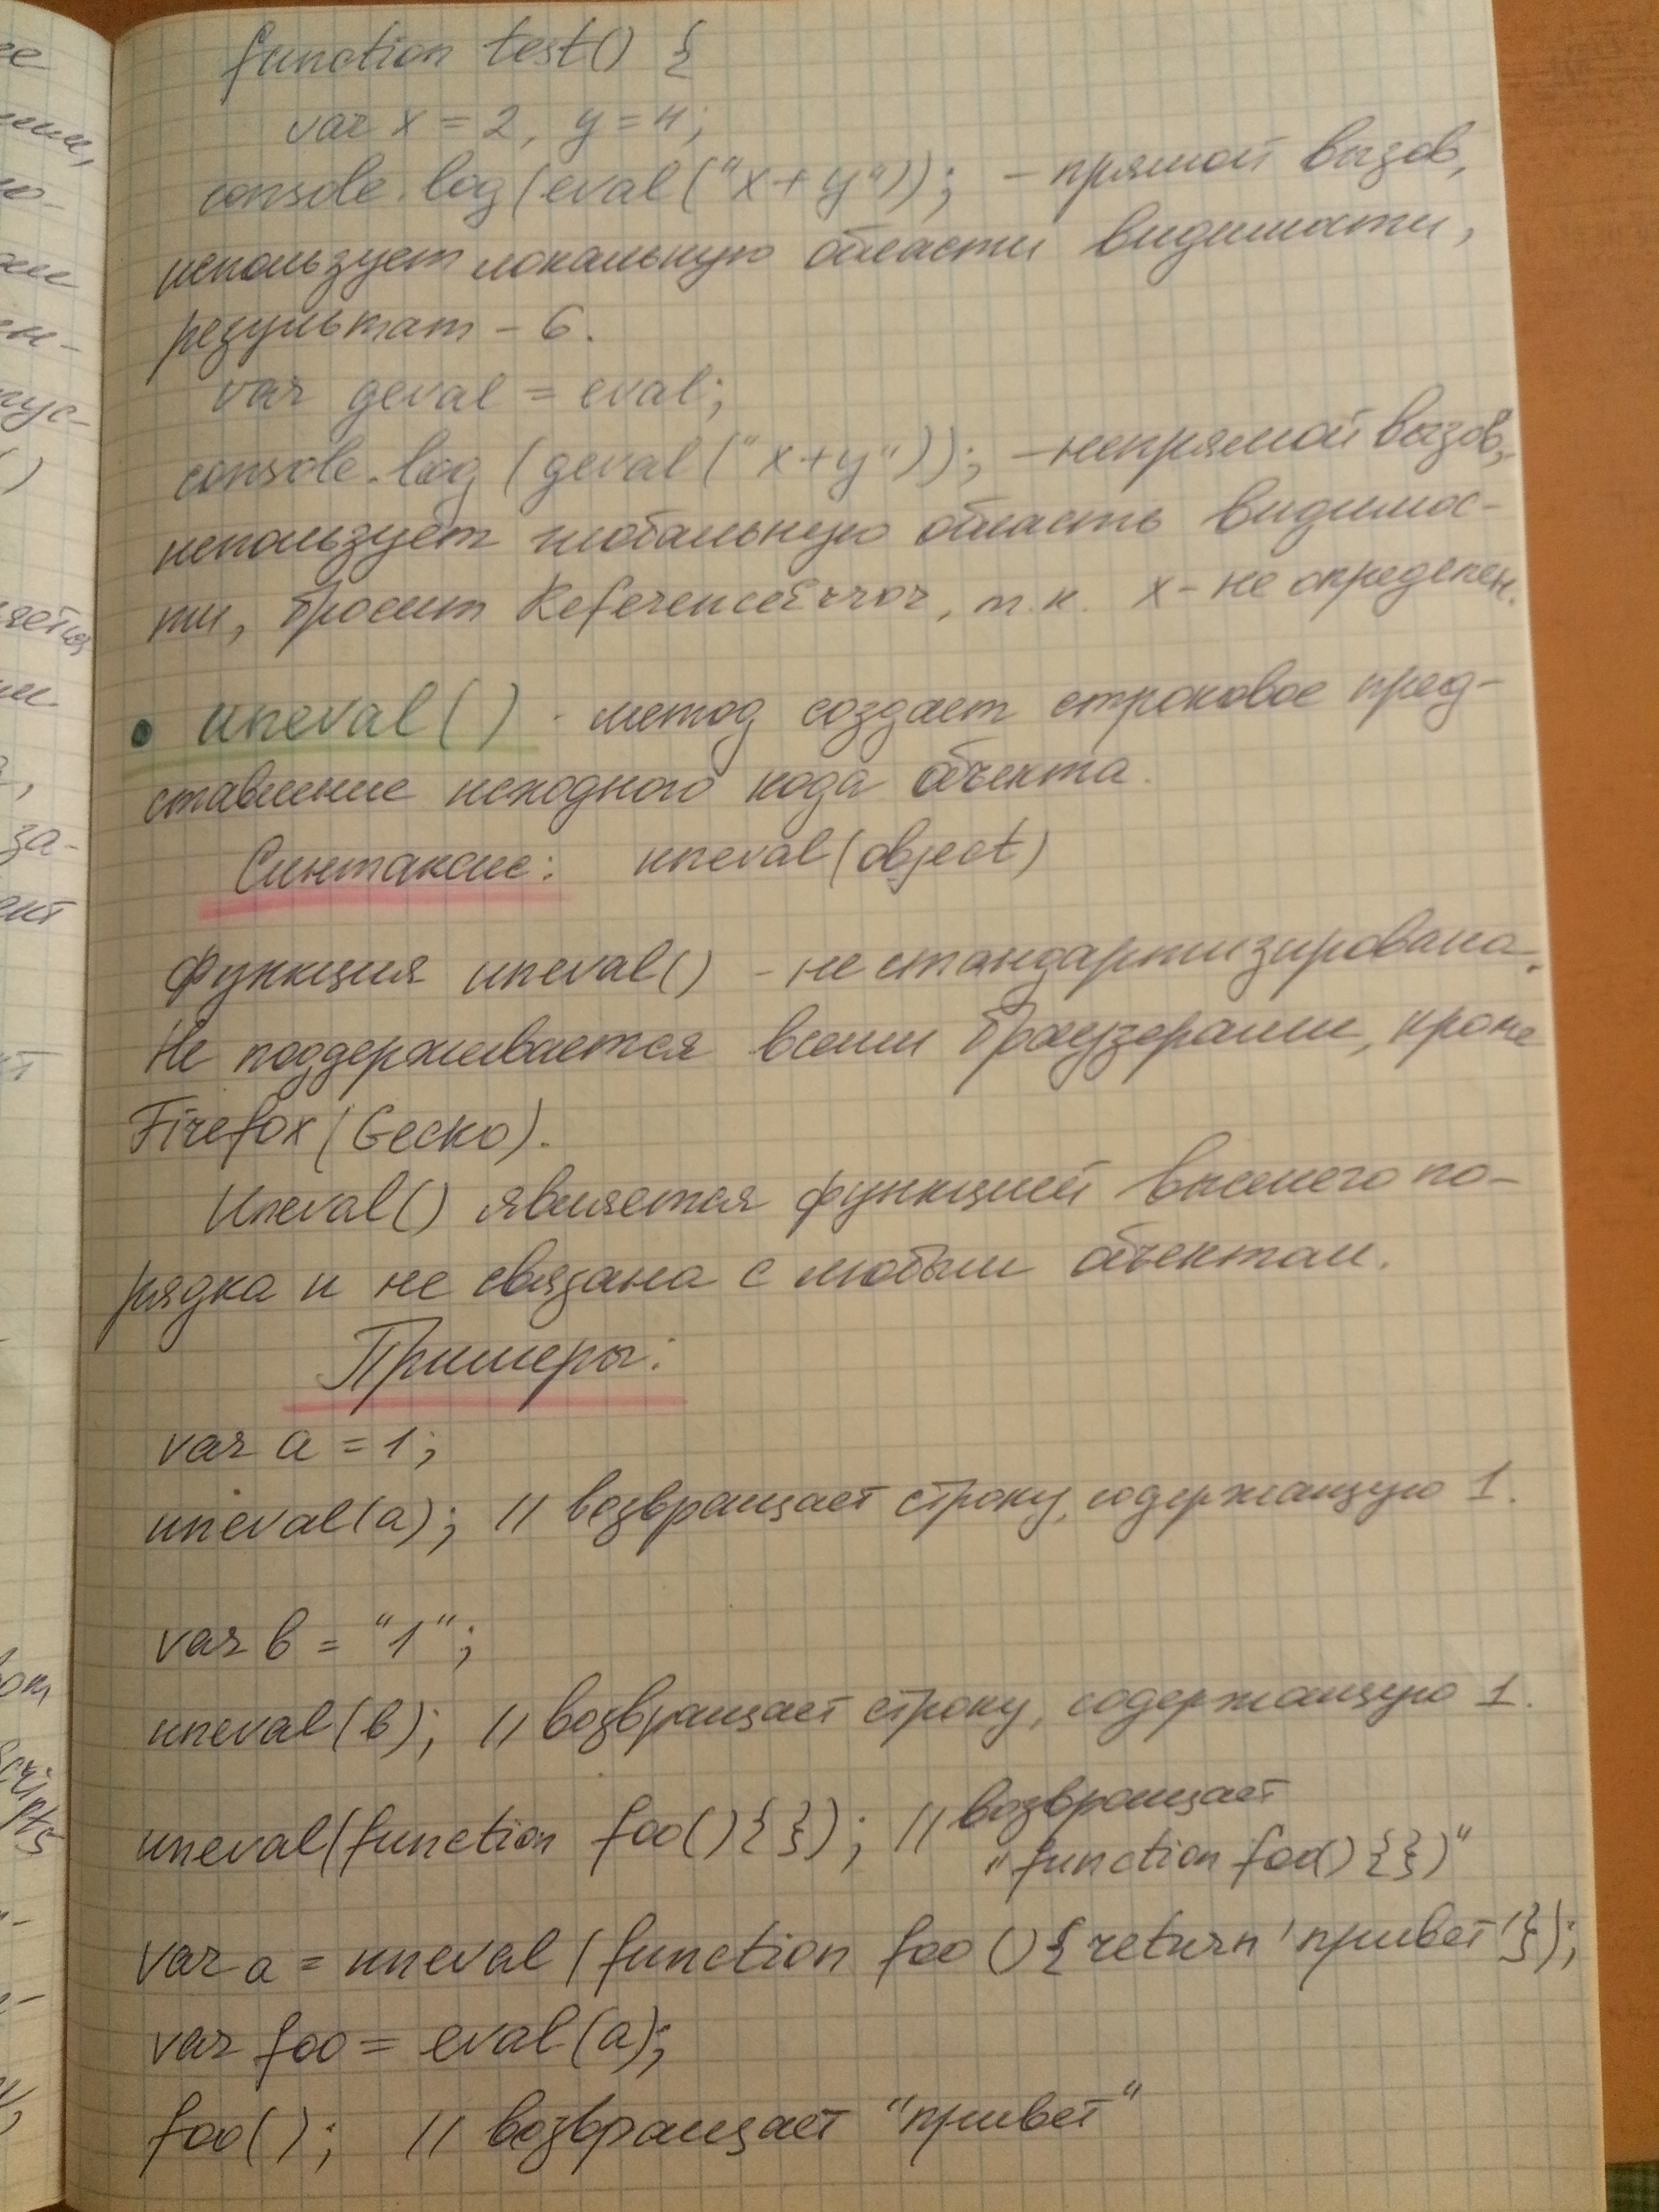 function test() {
var x = 2, y = 4;
console.log(eval("x+y")); - прямой вызов,
использует локальную области видимости,
результат - 6.
var geval = eval;
console.log (geval("x+y")); - непрямой вызов,
использует глобальную область видимос-
ти, бросит ReferenceError, т.к. x - не определен.
• uneval() - метод создает строковое пред-
ставление исходного кода объекта.
Синтаксис: uneval(object)
Функция uneval() - не стандартизирована.
Не поддерживается всеми браузерами, кроме
Firefox (Gecko).
Uneval() является функцией высшего по-
рядка и не связана с любым объектом.
Примеры:
var a = 1;
uneval(a); // возвращает строку, содержащую 1.
var b = "1";
uneval(b); // возвращает строку, содержащую 1.
uneval(function foo(){}); // возвращает
"function foo(){})"
var a = uneval(function foo(){return 'привет'});
var foo = eval(a);
foo(); // возвращает "привет"